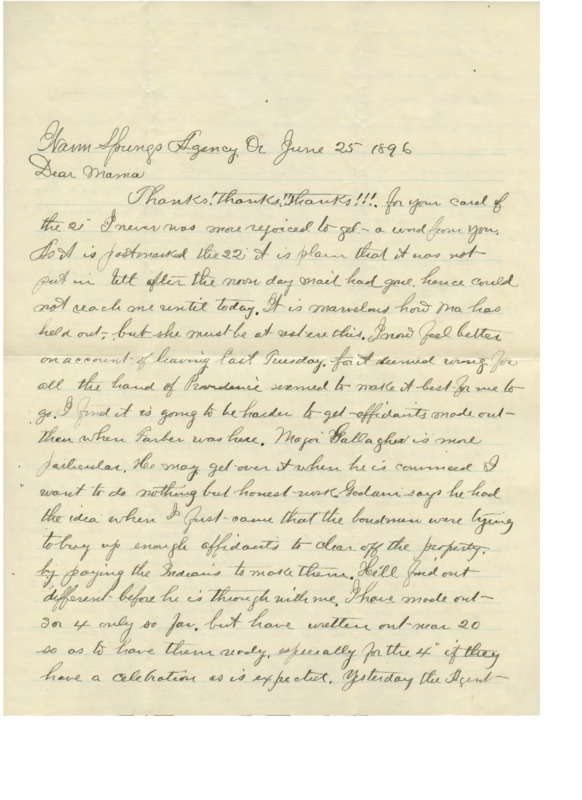 Warm Springs Agency Or June 25 1896
Dear Mama
Thanks! thanks!! thanks!!! for your card of
the 21" I never was more rejoiced to get a word from you.
As it is postmarked the 22" it is plain that it was not
put in till after the noon day mail had gone, hence could
not reach me until today. It is marvelous how Ma has
held out, but she must be at rest ere this. I now feel better
on account of leaving last Tuesday, for it seemed wrong for
all the hand of Providence seemed to make it best for me to
go. I find it is going to be harder to get affidants made out
then when Farber was here. Magor Gallagher is more
particular. He may get over it when he is convinced I
want to do nothing but honest work says he had
the idea when I just came that the bondmen were trying
to buy up enough affidants to clear off the property,
by paying the Indians to make them. He'll find out
different before he is through with me. I have made out
3 or 4 only so far, but have written out near 20
so as to have them ready, especially for the 4" if they
have a celebration as is expected. Yesterday the Agent